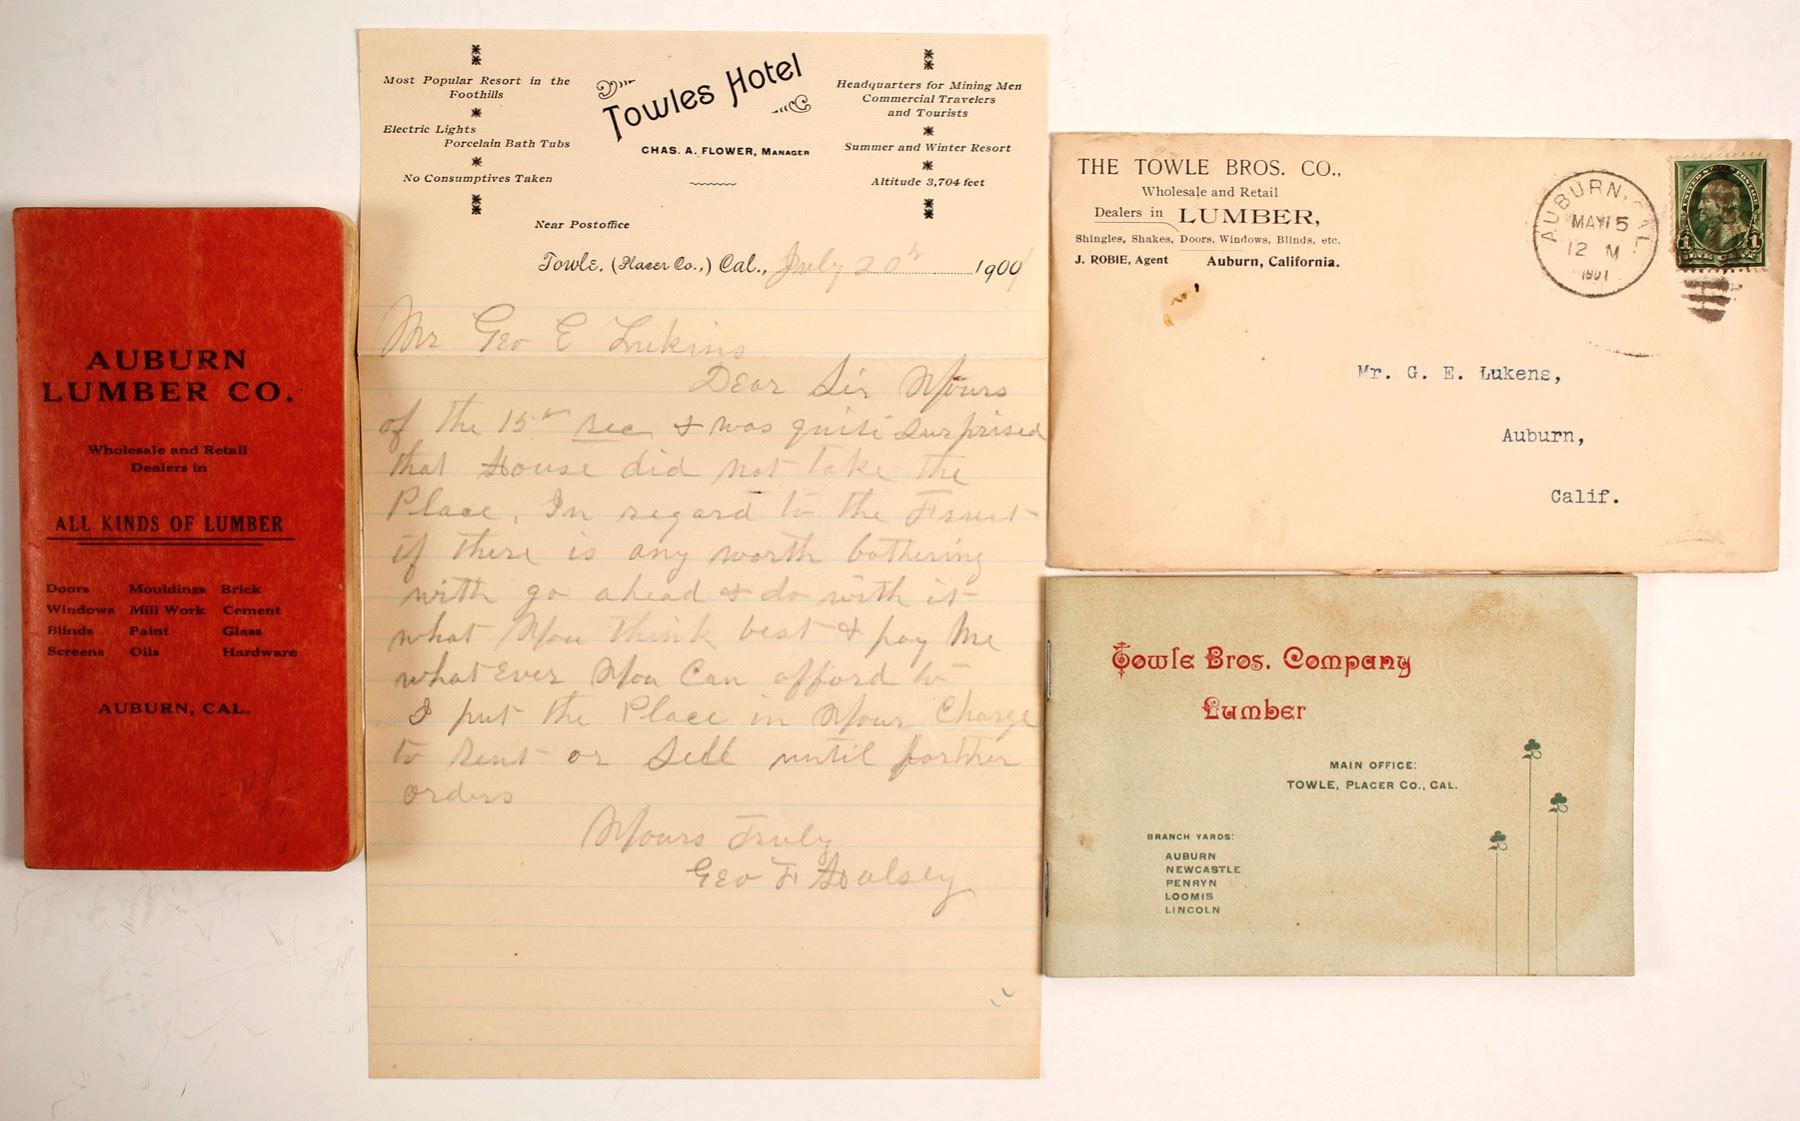 AUBURN
LUMBER CO.
Wholesale and Retail
Dealers in
ALL KINDS OF LUMBER
Doors Mouldings Brick
Windows Mill Work Cement
Blinds Paint Glass
Screens Oils Hardware
AUBURN, CAL.
Most Popular Resort in the
Foothills
Electric Lights
Porcelain Bath Tubs
No Consumptives Taken
Towles Hotel
CHAS. A. FLOWER, MANAGER
Headquarters for Mining Men
Commercial Travelers
and Tourists
Summer and Winter Resort
Altitude 3,704 feet
Near Postoffice
Towle, (Placer Co.,) Cal., July 20th 1900
Mr Geo E Lukins
Dear Sir Yours
of the 15th rec & was quite surprised
that House did not take the
Place. In regard to the Fruit
if there is any worth bothering
with go ahead & do with it
what You think best & pay Me
what Ever You Can afford to
I put the Place in Your Charge
to Rent or Sell until forther
orders
Yours Truly
Geo F Halsey
THE TOWLE BROS. CO.,
Wholesale and Retail
Dealers in LUMBER,
Shingles, Shakes, Doors, Windows, Blinds, etc.
J. ROBIE, Agent Auburn, California.
AUBURN, CAL.
MAY 15
12 M
1901
Mr. G. E. Lukens,
Auburn,
Calif.
Towle Bros. Company
Lumber
MAIN OFFICE:
TOWLE, PLACER CO., CAL.
BRANCH YARDS:
AUBURN
NEWCASTLE
PENRYN
LOOMIS
LINCOLN